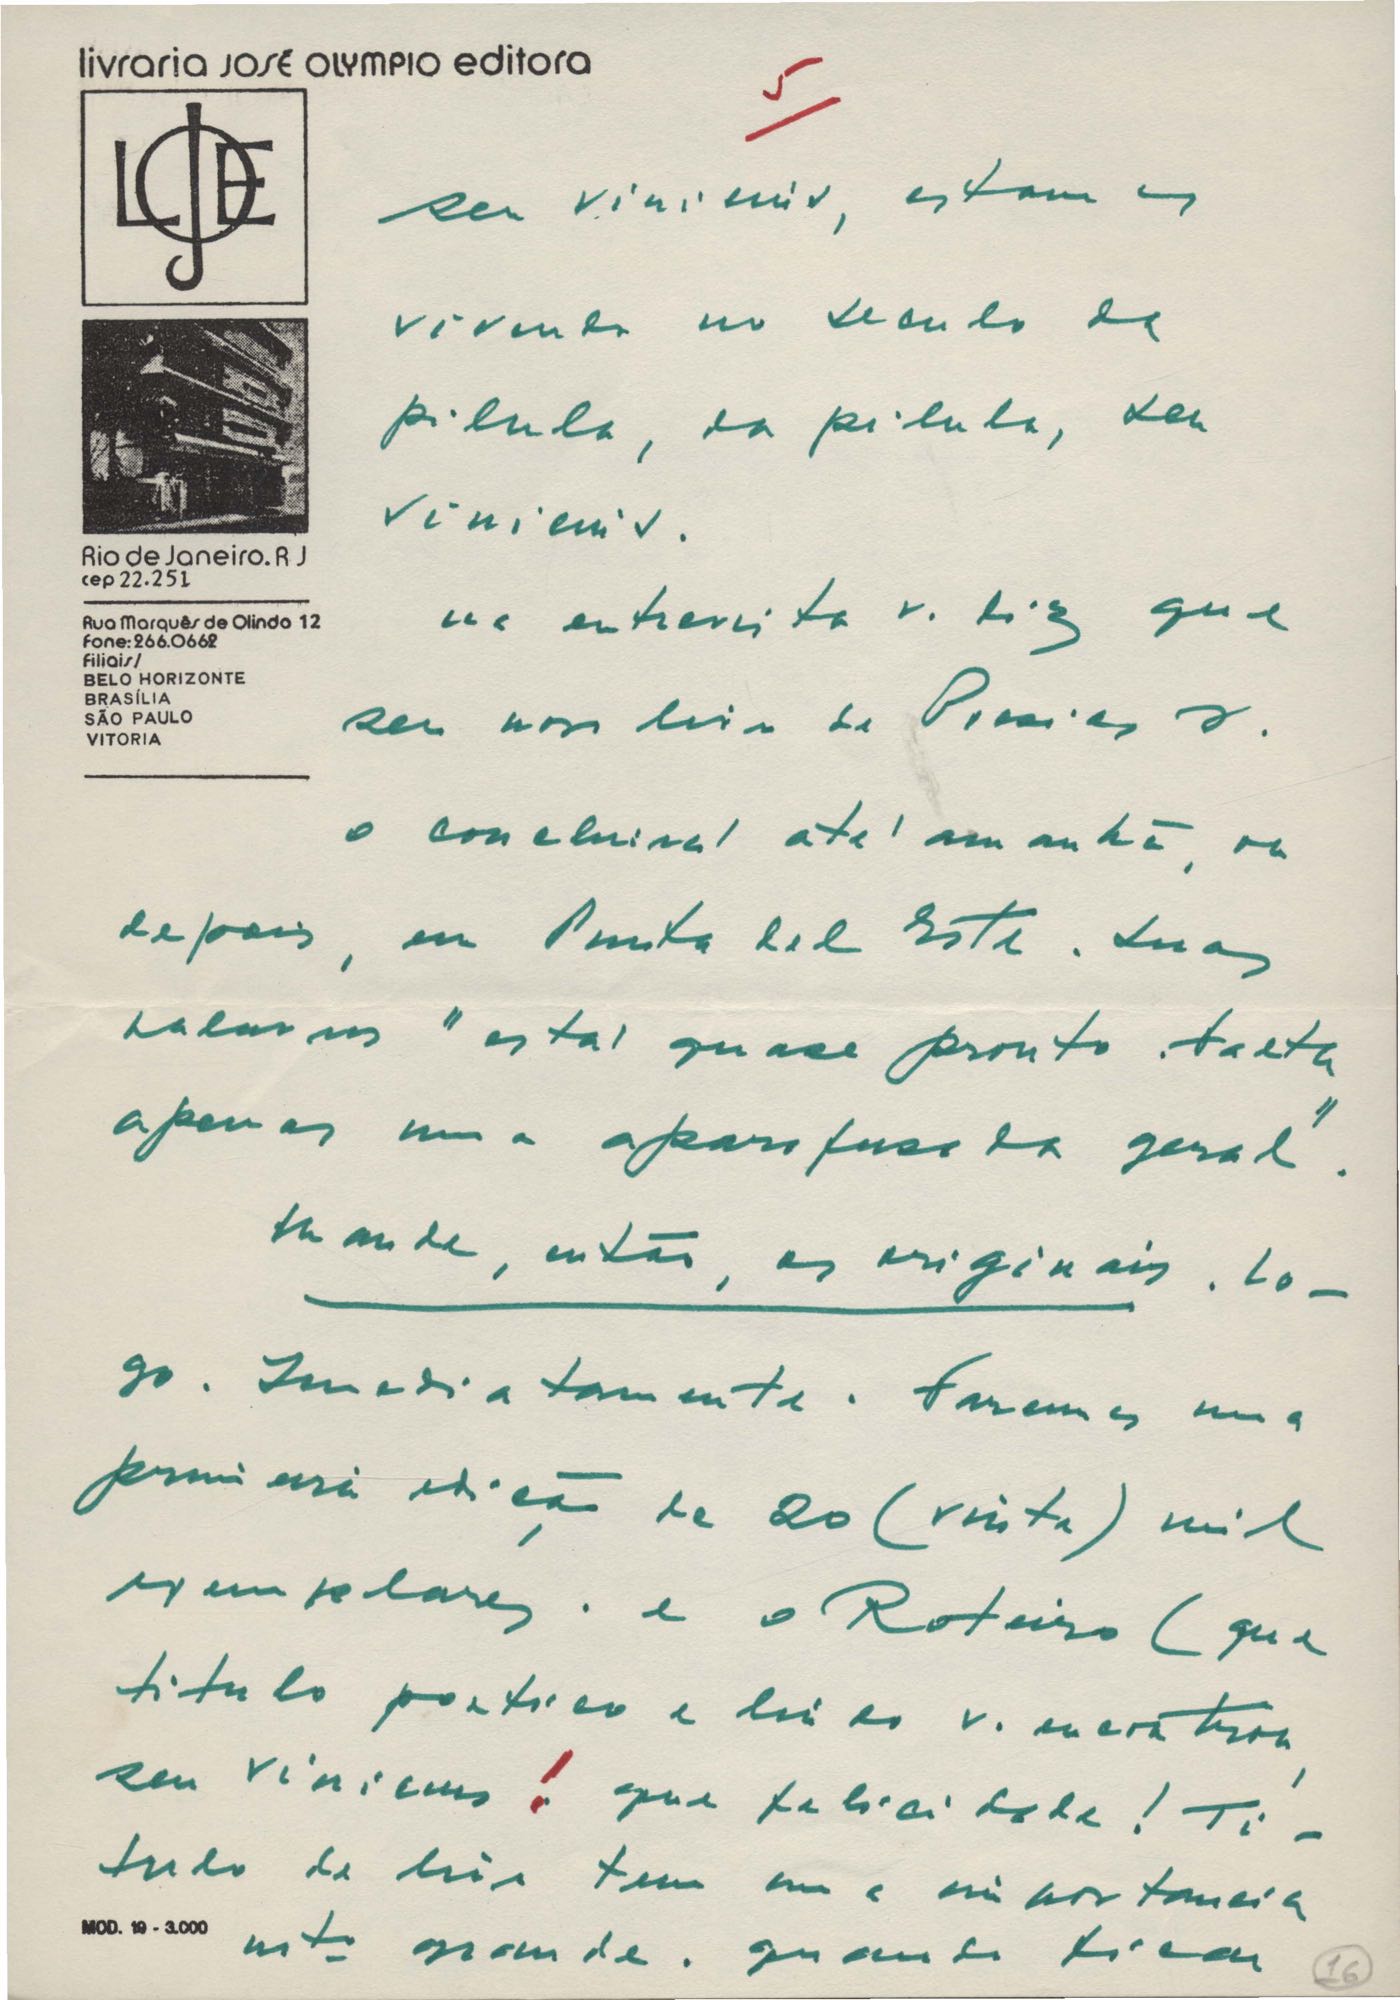 livraria JOSÉ OLYMPIO editora
5
LJOE
seu vinicius, estamos
vivendo no seculo da
pilula, da pilula, seu
vinicius.
Rio de Janeiro. R J
cep 22.251
Rua Marquês de Olinda 12
fone: 266.0662
filiais/
BELO HORIZONTE
BRASÍLIA
SÃO PAULO
VITORIA
na entrevista v. diz que
seu novo livro de Poesias v.
o concluirá até amanhã, ou
depois, em Punta del Este. suas
palavras "está quase pronto. falta
apenas uma aparafusada geral".
Mande, então, os originais. Lo-
go. Imediatamente. Faremos uma
primeira edição de 20 (vinte) mil
exemplares. e o Roteiro (que
titulo poetico e lindo v. encontrou,
seu vinicius! que felicidade! Ti-
tulo de livro tem uma importancia
mto grande. quando ficar
MOD. 19 - 3.000
16